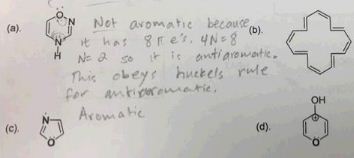 (a).
O
N
N
H
Not aromatic because
it has 8 π e's. 4N=8
N=2 so it is antiaromatic.
This obeys huckels rule
for antiaromatic.
(b).
(c).
N
O
Aromatic
(d).
OH
O